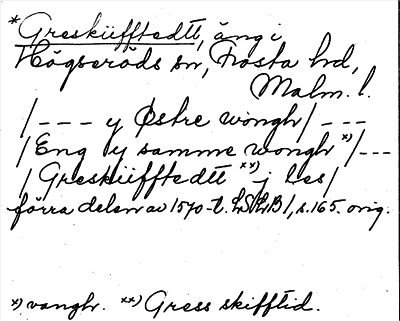 *Greskiifftedtt, äng i
Högseröds sn, Frosta hd,
Malm. l.
/--- y Østre wongh/---
/Eng y samme wongh x)/---
/Greskiifftedtt xx) j les/
förra delen av 1570-t. LSLB1, s.165. orig.
x) vangh. xx) Gress skifftid.